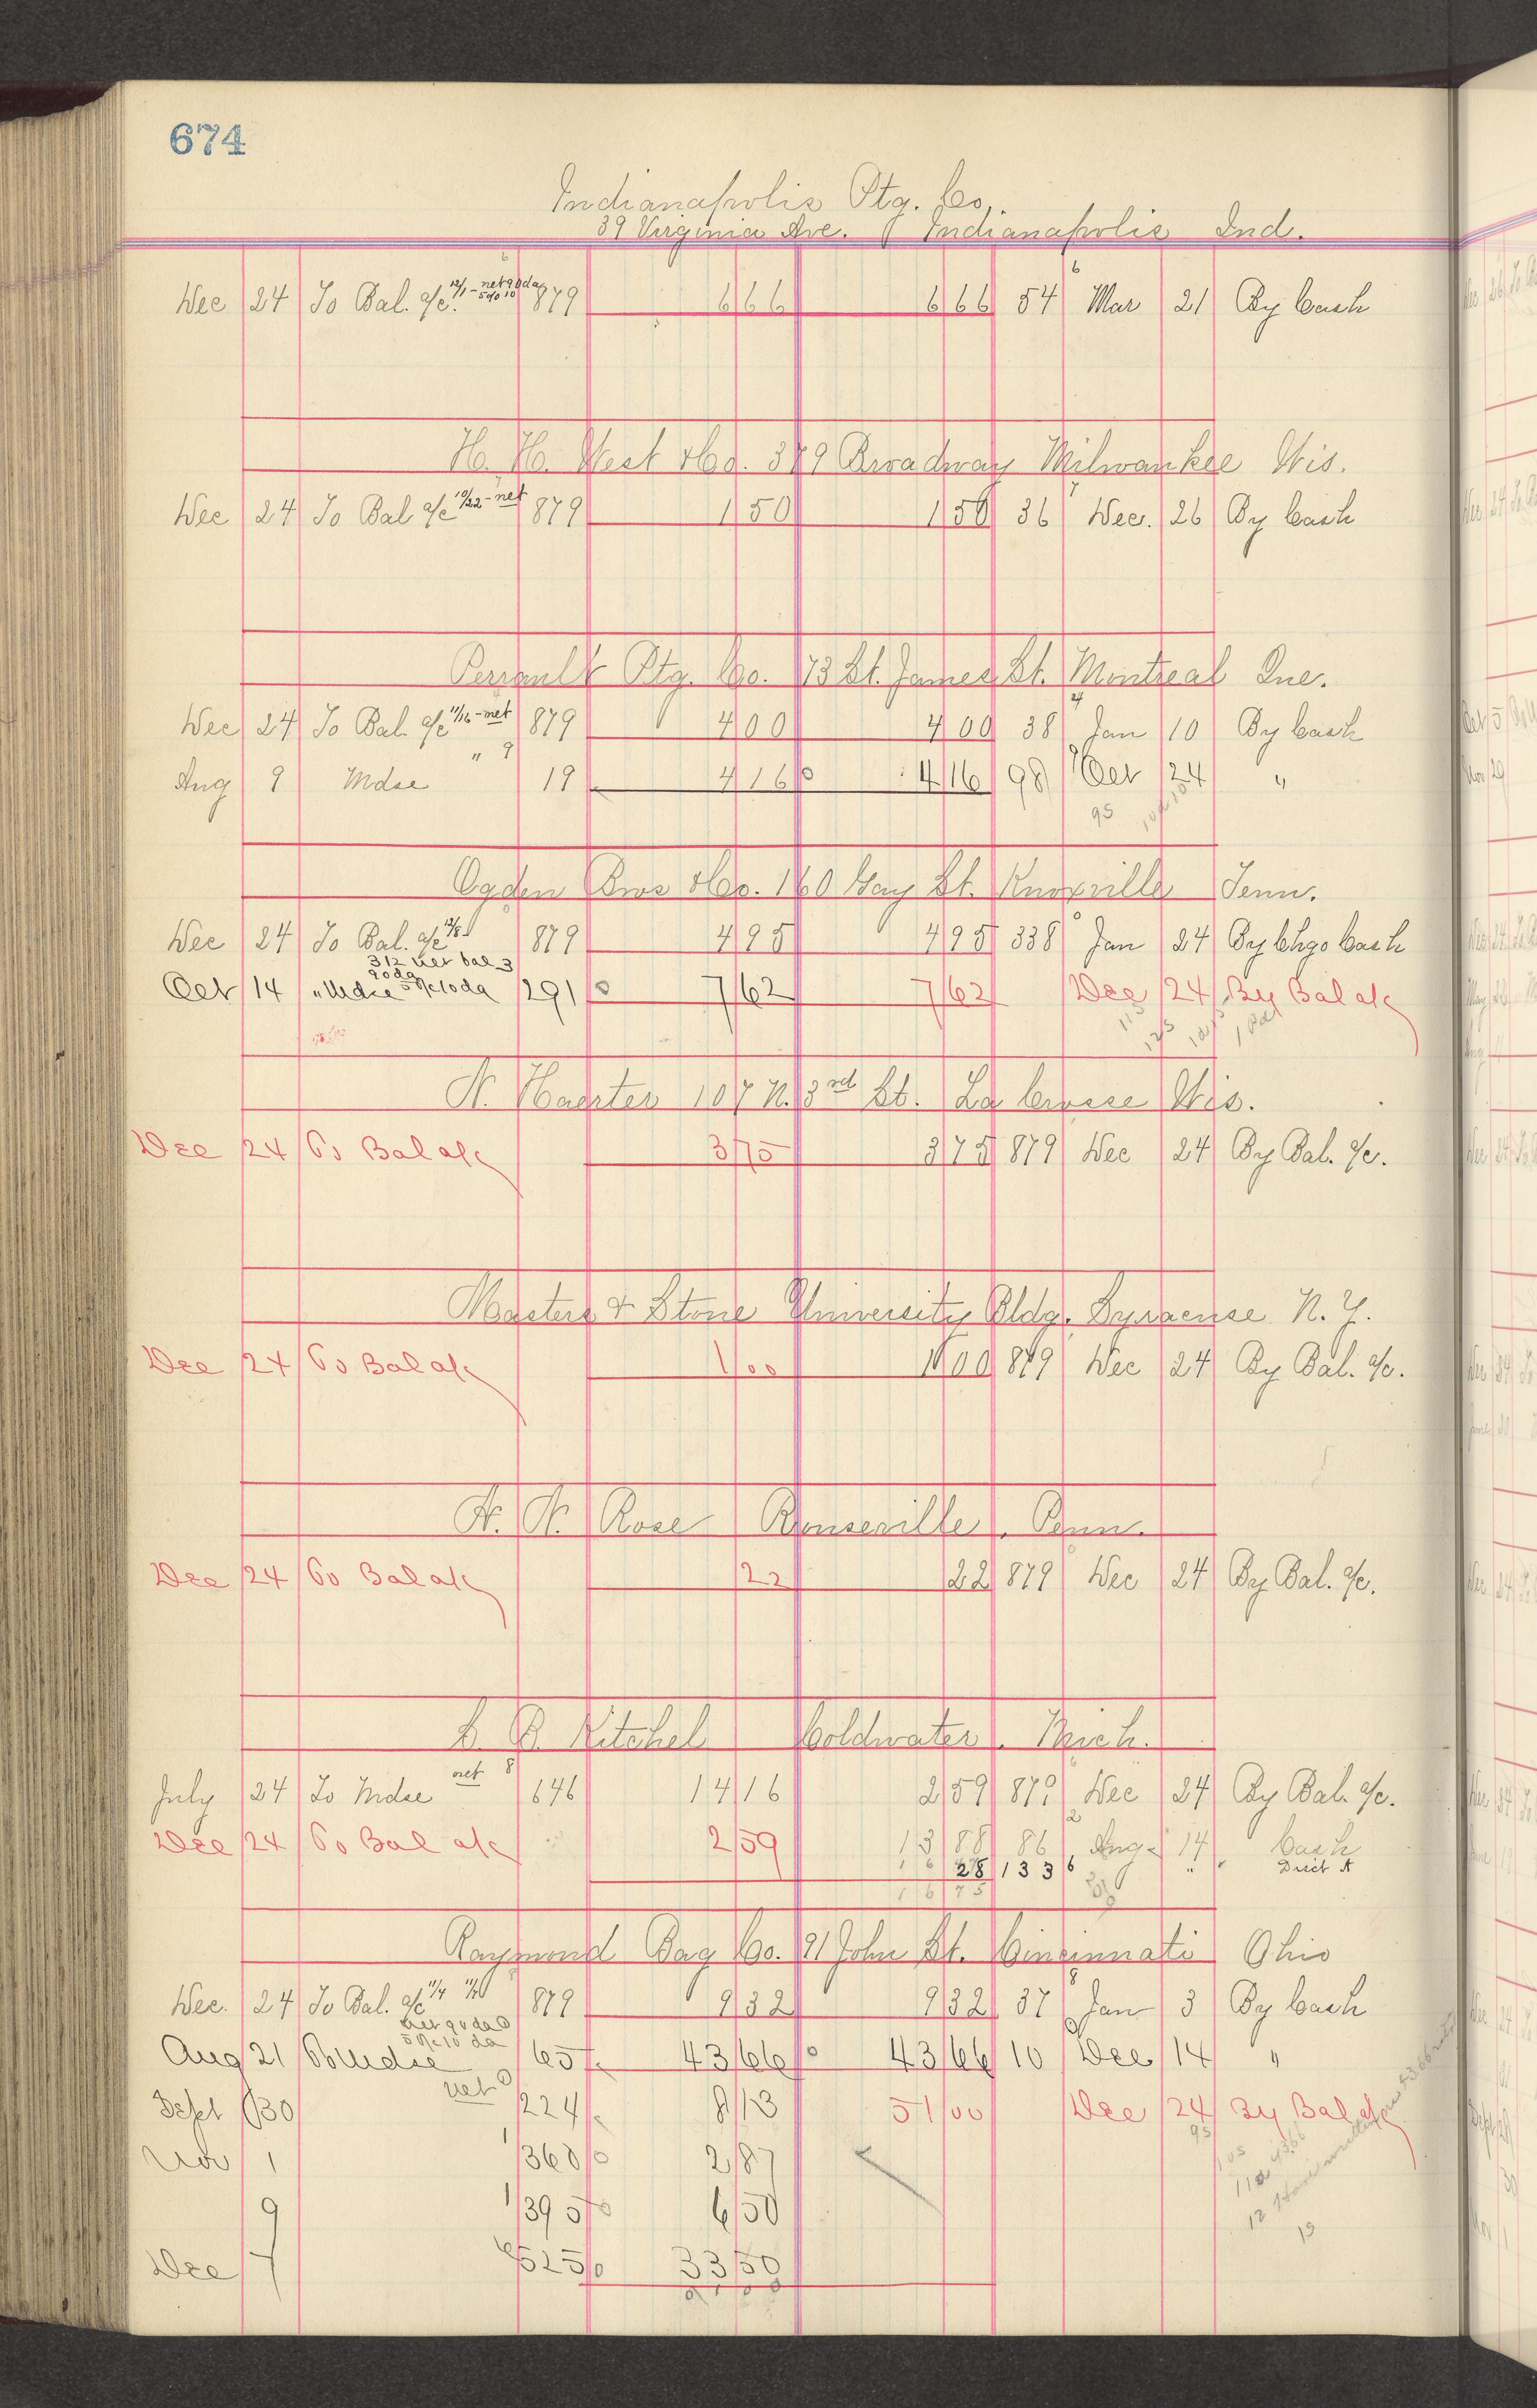 674
Indianapolis Ptg. Co.
39 Virginia Ave. Indianapolis Ind.
Dec 24 To Bal. a/c. 12/1 - net 90 da 5% 10 879 6 66 6 66 54 6 Mar 21 By Cash
H. H. West & Co. 379 Broadway Milwaukee Wis.
Dec 24 To Bal a/c 10/22 - net 879 1 50 1 50 36 7 Dec. 26 By Cash
Perrault Ptg. Co. 73 St. James St. Montreal Que.
Dec 24 To Bal. a/c 11/16 - net 879 4 00 4 00 38 4 Jan 10 By Cash
Aug 9 Mdse " 9 19 4 16 4 16 98 9 Oct 24 "
95
Ogden Bros & Co. 160 Gay St. Knoxville Tenn.
Dec 24 To Bal. a/c 12/8 879 4 95 4 95 338 Jan 24 By Chgo Cash
312 net bal 3
90 da
Oct 14 " Mdse 5% 10 da 291 7 62 7 62 Dec 24 By Bal a/c
N. Haerter 107 N. 3rd St. La Crosse Wis.
Dec 24 To Bal a/c 3 75 3 75 879 Dec 24 By Bal. a/c.
Masters & Stone University Bldg. Syracuse N. Y.
Dec 24 To Bal a/c 1 00 1 00 879 Dec 24 By Bal. a/c.
Rose Rouseville, Penn.
Dec 24 To Bal a/c 22 22 879 Dec 24 By Bal. a/c.
Kitchel Coldwater, Mich.
July 24 To Mdse net 8 646 14 16 2 59 879 Dec 24 By Bal. a/c.
Dec 24 To Bal a/c 2 59 13 88 86 2 Aug 14 Cash
28 133 6 " Disct A
16 75
Raymond Bag Co. 91 John St. Cincinnati Ohio
Dec. 24 To Bal. a/c 11/4 879 9 32 9 32 37 8 Jan 3 By Cash
net 90 da
5% 10 da
Aug 21 To Mdse 65 43 66 43 66 10 Dec 14 "
Sept 30 net 224 8 13 51 00 Dec 24 By Bal a/c
95
Nov 1 360 2 87
9 395 6 50
Dec 7 525 33 50